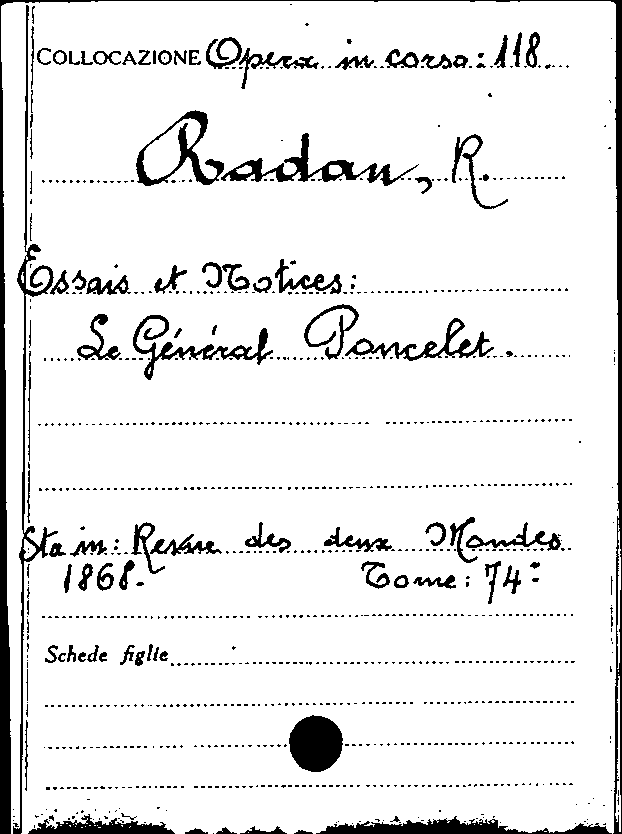 COLLOCAZIONE Opera in corso: 118.
Radau, R.
Essais et Notices:
Le Général Poncelet.
Sta in: Revue des deux Mondes
1868. Tome: 74:
Schede figlie